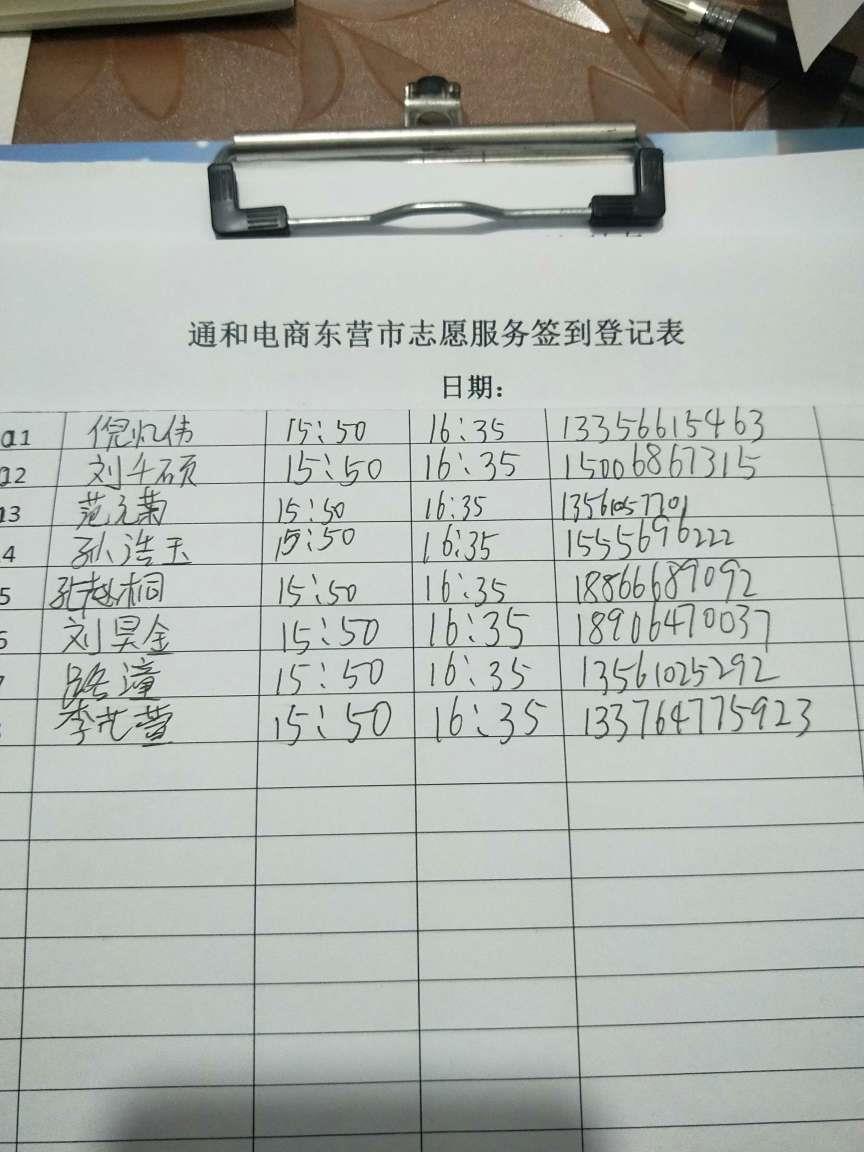 通和电商东营市志愿服务签到登记表
日期：
a1 倪 伟 15:50 16:35 133566154463
12 刘千硕 15:50 16:35 15006867315
13 范元菊 15:50 16:35 13561057701
4 孙浩玉 15:50 16:35 1555696222
5 张赵桐 15:50 16:35 18866689092
6 刘昊金 15:50 16:35 18906470037
路潼 15:50 16:35 13561025292
李艺萱 15:50 16:35 133764775923